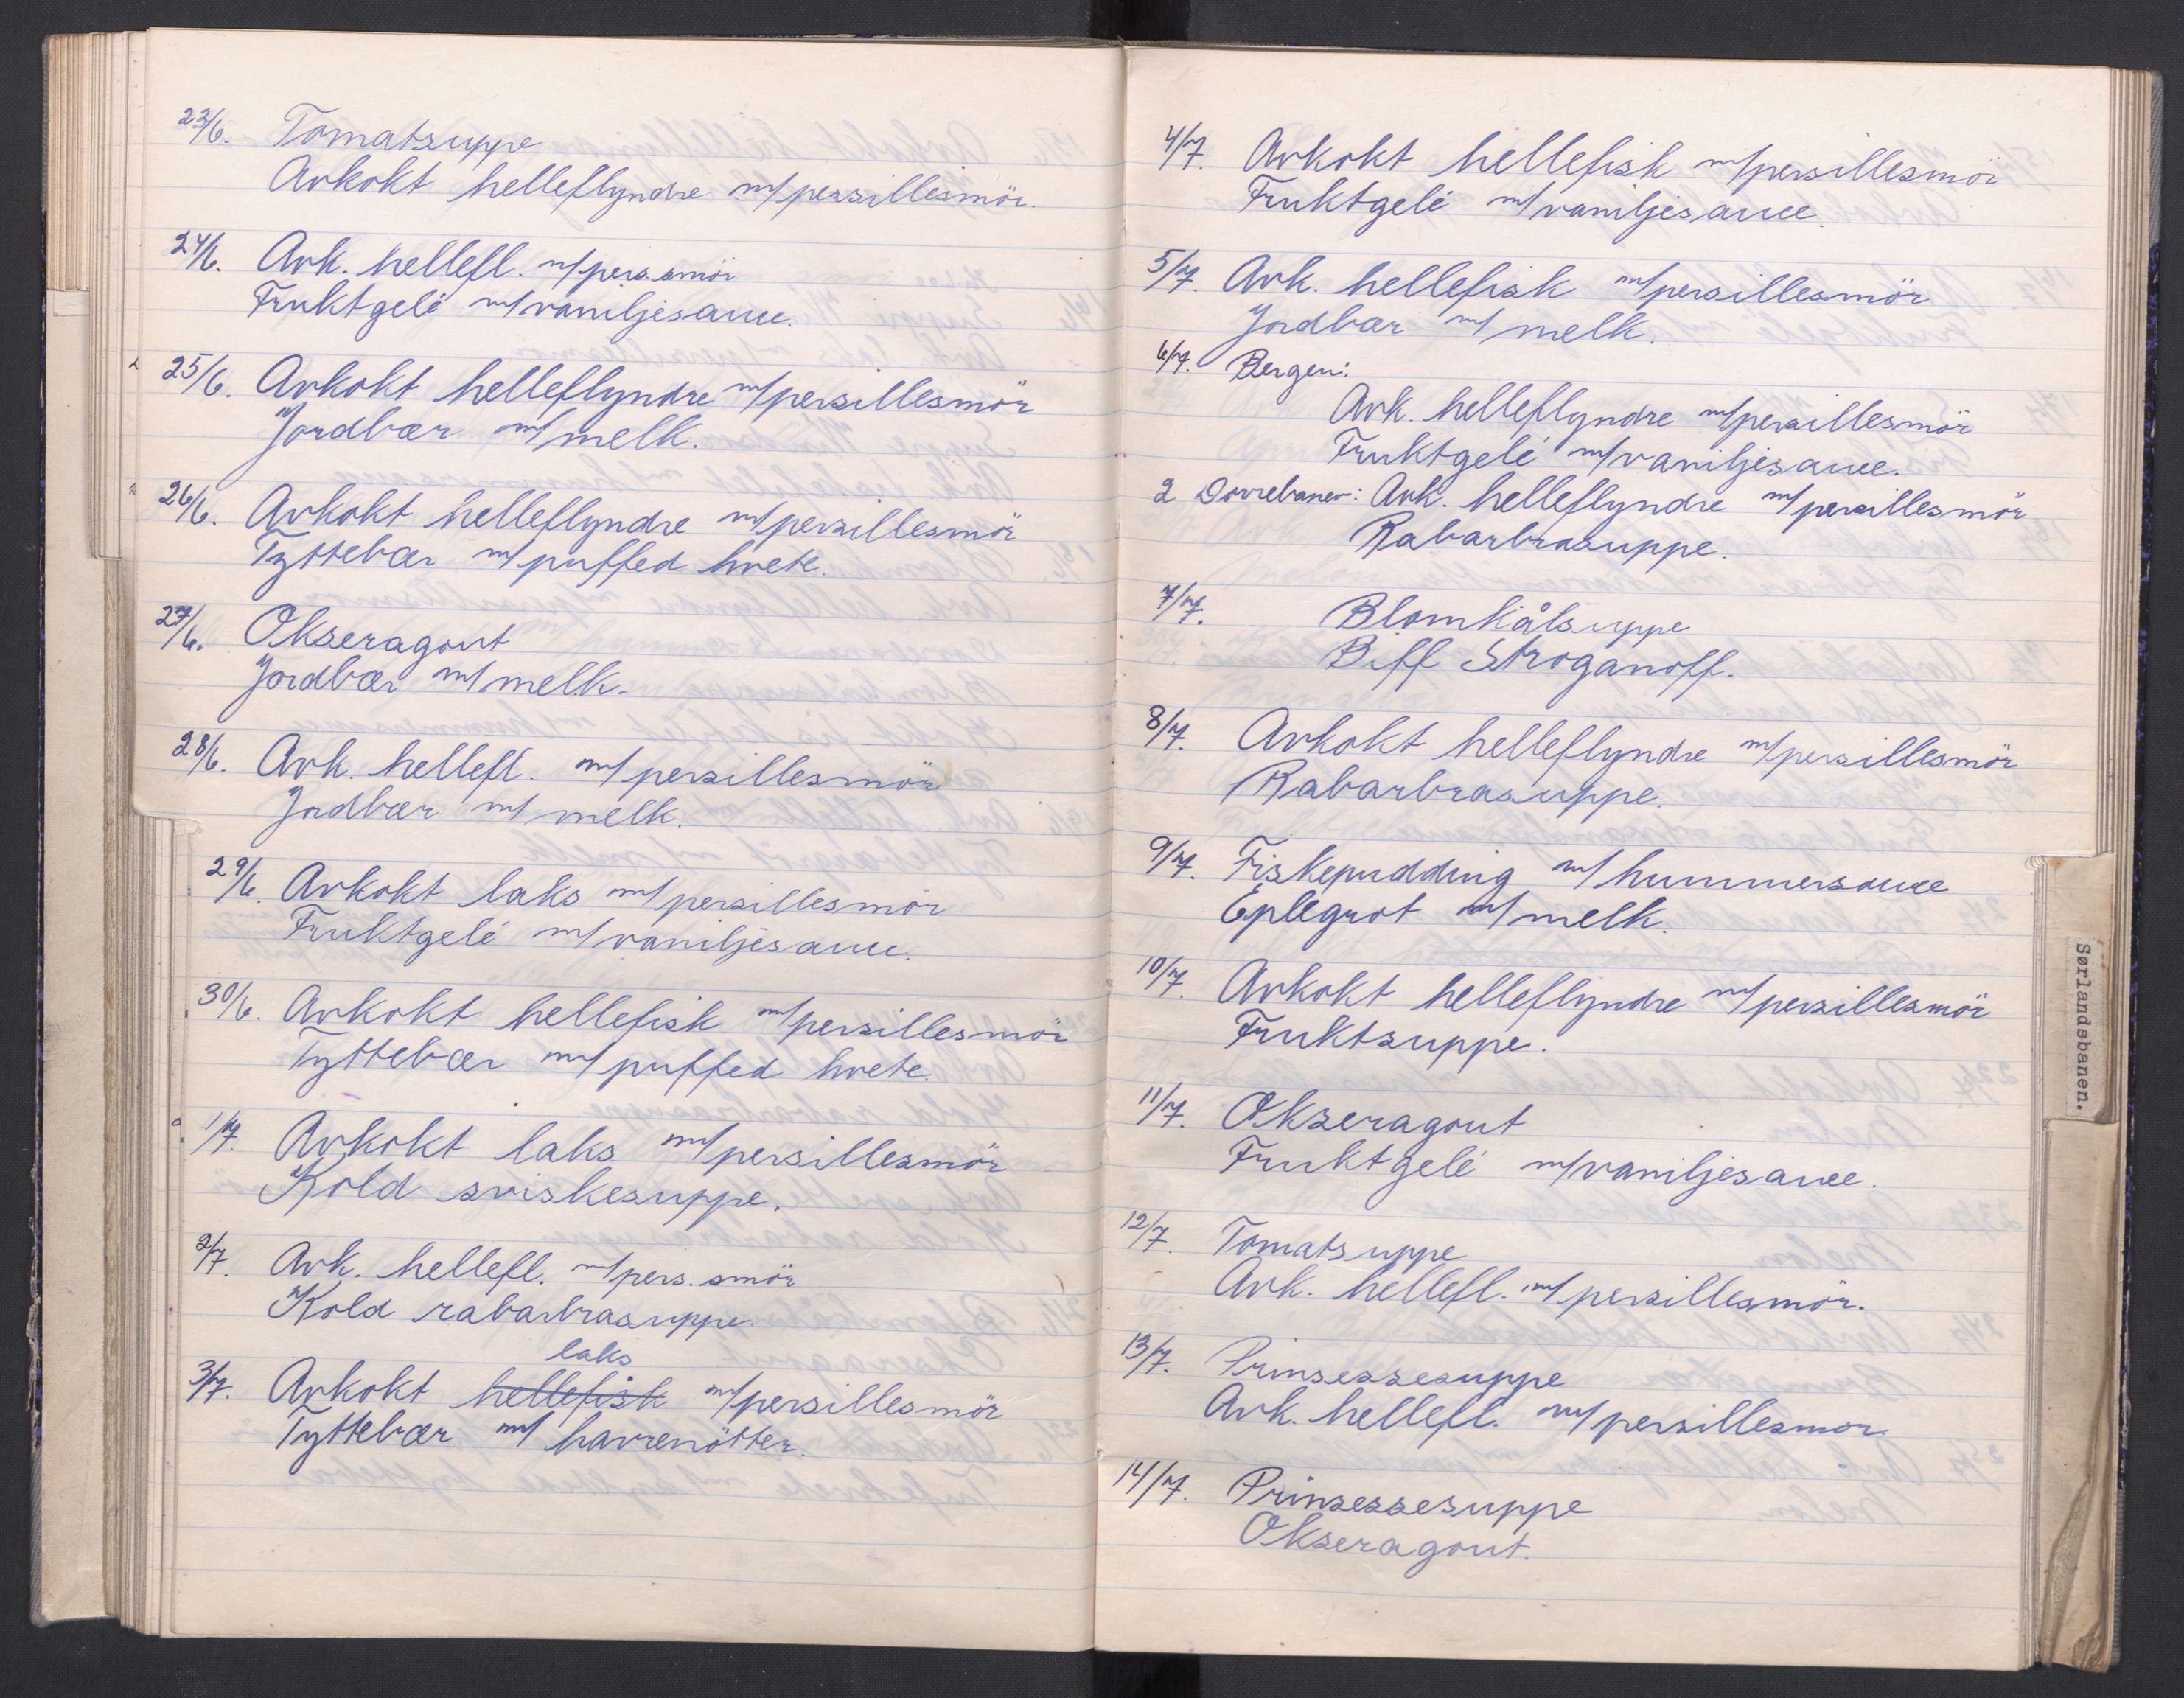 23/6. Tomatsuppe
Avkokt helleflyndre m/persillesmör.
24/6. Avk. hellefl. m/pers. smör
Fruktgelé m/vaniljesauce.
25/6. Avkokt helleflyndre m/persillesmör
Jordbær m/melk.
26/6. Avkokt helleflyndre m/persillesmör
Tyttebær m/puffed hvete.
27/6. Okseragout
Jordbær m/melk.
28/6. Avk. hellefl. m/persillesmör
Jordbær m/melk.
29/6. Avkokt laks m/persillesmör
Fruktgelé m/vaniljesauce.
30/6. Avkokt hellefisk m/persillesmör
Tyttebær m/puffed hvete.
1/7. Avkokt laks m/persillesmör
Kold sviskesuppe.
2/7. Avk. hellefl. m/pers. smör
Kold rabarbrasuppe.
laks
3/7. Avkokt hellefisk m/persillesmör
Tyttebær m/havrenötter.
4/7. Avkokt hellefisk m/persillesmör
Fruktgelé m/vaniljesauce.
5/7. Avk. hellefisk m/persillesmör
Jordbær m/melk.
6/7. Bergen:
Avk. helleflyndre m/persillesmör
Fruktgelé m/vaniljesauce.
2 Dovrebaner: Avk. helleflyndre m/persillesmör
Rabarbrasuppe.
7/7. Blomkålsuppe
Biff Stroganoff.
8/7. Avkokt helleflyndre m/persillesmör
Rabarbrasuppe.
9/7. Fiskepudding m/hummersauce
Eplegröt m/melk.
10/7. Avkokt helleflyndre m/persillesmör
Fruktsuppe.
11/7. Okseragout
Fruktgelé m/vaniljesauce.
12/7. Tomatsuppe
Avk. hellefl. m/persillesmör.
13/7. Prinsessesuppe
Avk. hellefl. m/persillesmör.
14/7. Prinsessesuppe
Okseragout.
Sørlandsbanen.